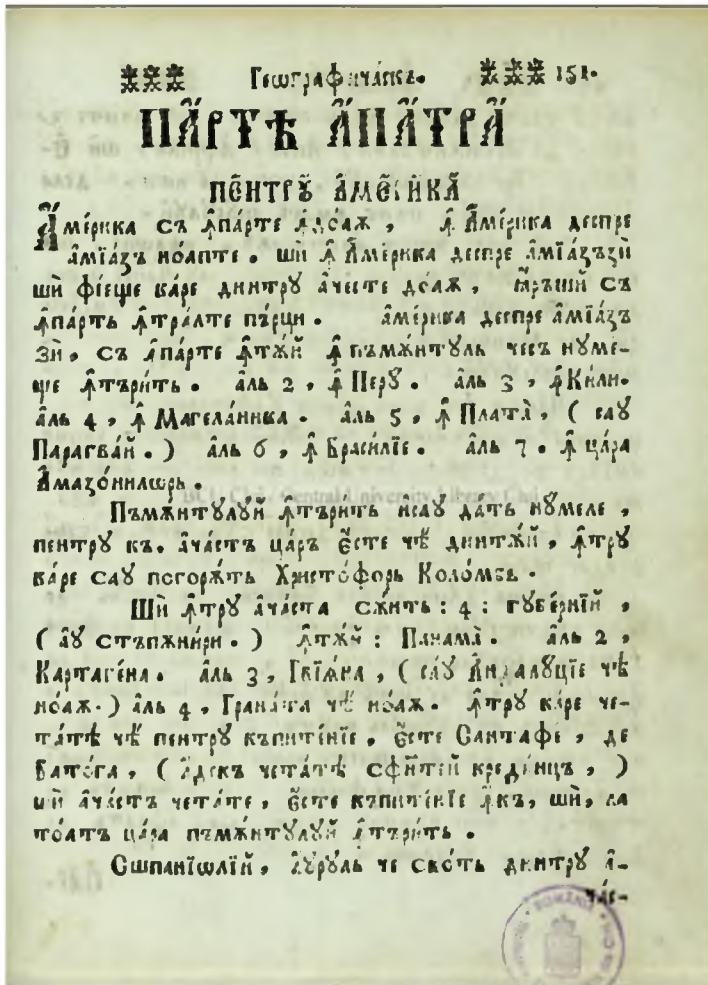 Геѡграфичѧскъ. 151.
ПА́РТѢ А҆ПА́ТРА
ПЕ́НТРꙊ АМЕ́РИКА
Аме́рика съ ꙟ҆па́рте ꙟ҆до́аѫ , ꙟ҆ Аме́рика деспре
а҆мїа́зъ но́апте . шѝ ꙟ҆ Аме́рика деспре а҆мїа́зъзѝ
шѝ фїе́ще ка́ре динтрꙋ а҆че́сте до́аѫ , ꙟ҆ръшѝ съ
ꙟ҆па́рть ꙟ҆тра́лте пъ́рци . а҆ме́рика деспре а҆мїа́зъ
зѝ , съ ꙟ҆па́рте ꙟ҆тѫ́й ꙟ҆ пъмѫ́нтꙋль чесъ нꙋме-
ще ꙟ҆търи́ть . а҆́ль 2 , ꙟ҆ Перꙋ̀ . а҆́ль 3 , ꙟ҆ Ки́ли .
а҆́ль 4 , ꙟ҆ Магела́ника . а҆́ль 5 , ꙟ҆ Плата̀ , ( саꙋ
Парагва́й . ) а҆́ль 6 , ꙟ҆ Браси́лїе . а҆́ль 7 . ꙟ҆ ца́ра
А҆мазо́нилѡрь .
BCU Cluj / Central University Library Cluj
Пъмѫ́нтꙋлꙋй ꙟ҆търи́ть и҆саꙋ да́ть нꙋ́меле ,
пентрꙋ къ . а҆ча́стъ ца́ръ є҆́сте чѣ динтѫ́й , ꙟ҆трꙋ
ка́ре саꙋ погорѫ́ть Христо́форь Коло́мбь .
Шѝ ꙟ҆трꙋ а҆ча́ста сѫ́нть : 4 : гꙋбе́рнїй ,
( а҆ꙋ стъпѫни́ри . ) ꙟ҆тѫ́й : Панама̀ . а҆́ль 2 ,
Картаге́на . а҆́ль 3 , Гвїѧ́на , ( са́ꙋ А҆ндалꙋцїе чѣ
но́аѫ . ) а҆́ль 4 , Грана́та чѣ но́аѫ . ꙟ҆трꙋ ка́ре че-
та́тѣ чѣ пентрꙋ къпите́нїе , є҆́сте Сантафѐ , де
Баго́га , ( а҆́декъ чета́тѣ сфи́нтей креди́нцъ , )
шѝ а҆ча́стъ чета́те , є҆́сте къпите́нїе ꙟ҆къ , шѝ , ла
то́атъ ца́ра пъмѫ́нтꙋлꙋй ꙟ҆търи́ть .
Сшпанїѡлїй , а҆́ꙋрꙋль че ско́ть динтрꙋ а҆-
ча́с-